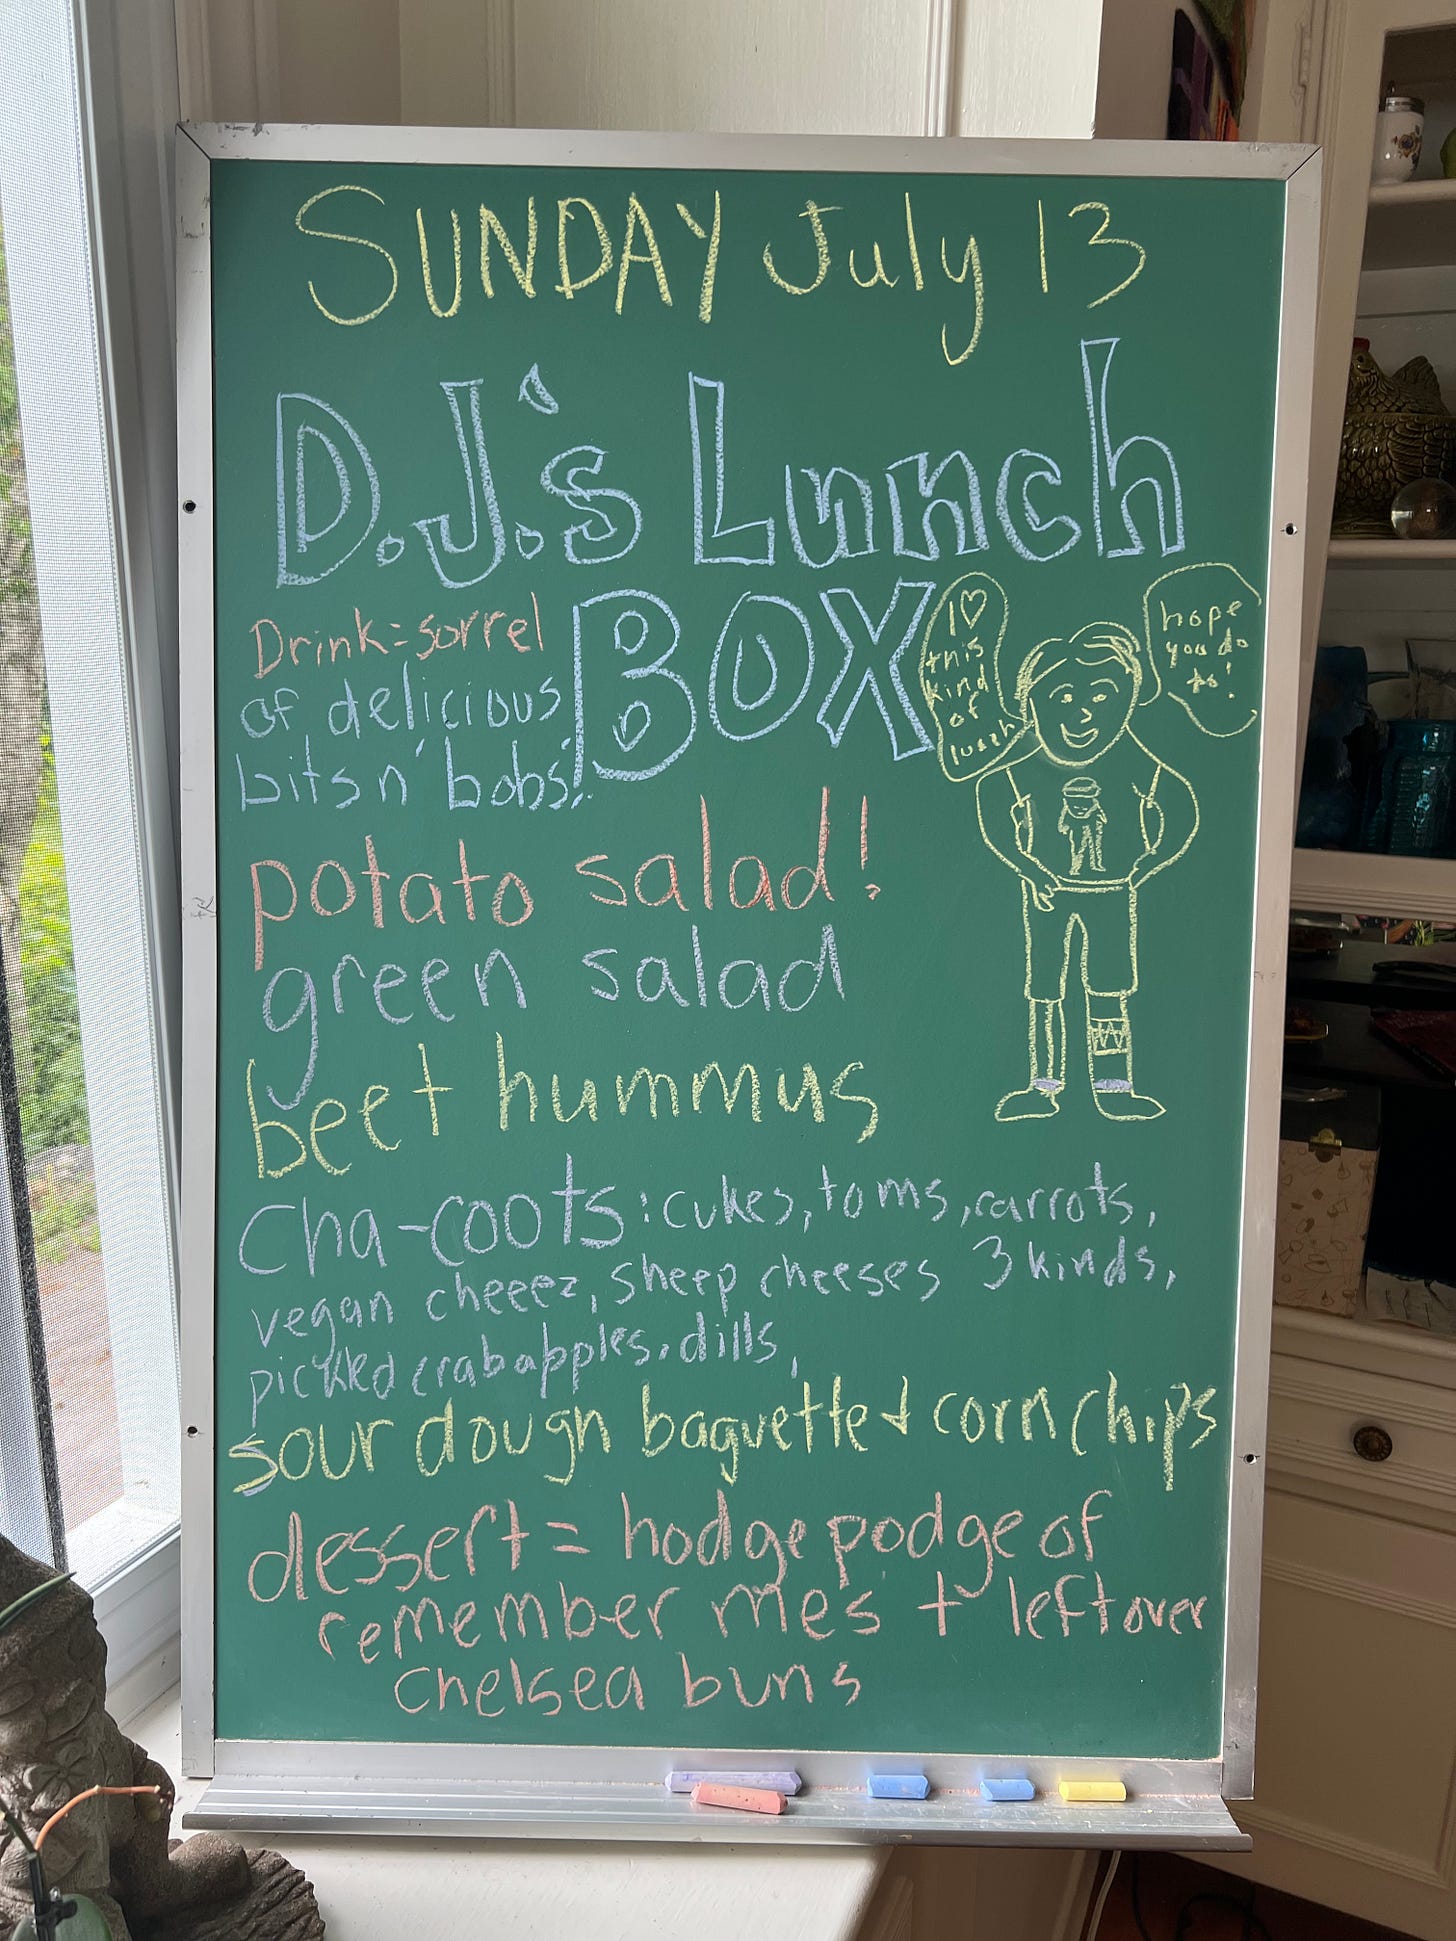 SUNDAY July 13
D.J.'s Lunch
BOX
Drink=sorrel
of delicious
bits n' bobs:
I ♡
this
kind
of
lunch
hope
you do
to!
potato salad!
green salad
beet hummus
Cha-coots: cukes, toms, carrots,
vegan cheeez, sheep cheeses 3 kinds,
pickled crabapples, dills,
sour dough baguette + corn chips
dessert = hodge podge of
remember mes + leftover
chelsea buns